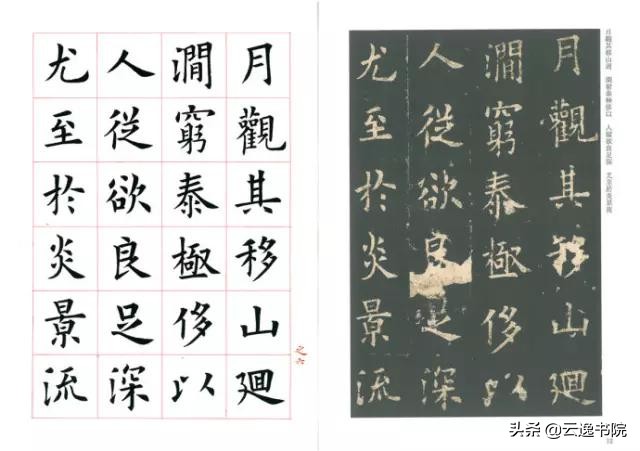 月觀其移山迴
澗窮泰極侈以
人從欲良足深
尤至於炎景流
之六
月觀其移山迴
澗窮泰極侈以
人從欲良足深
尤至於炎景流
月觀其移山迴 澗窮泰極侈以 人從欲良足深 尤至於炎景流
头条 @云逸书院